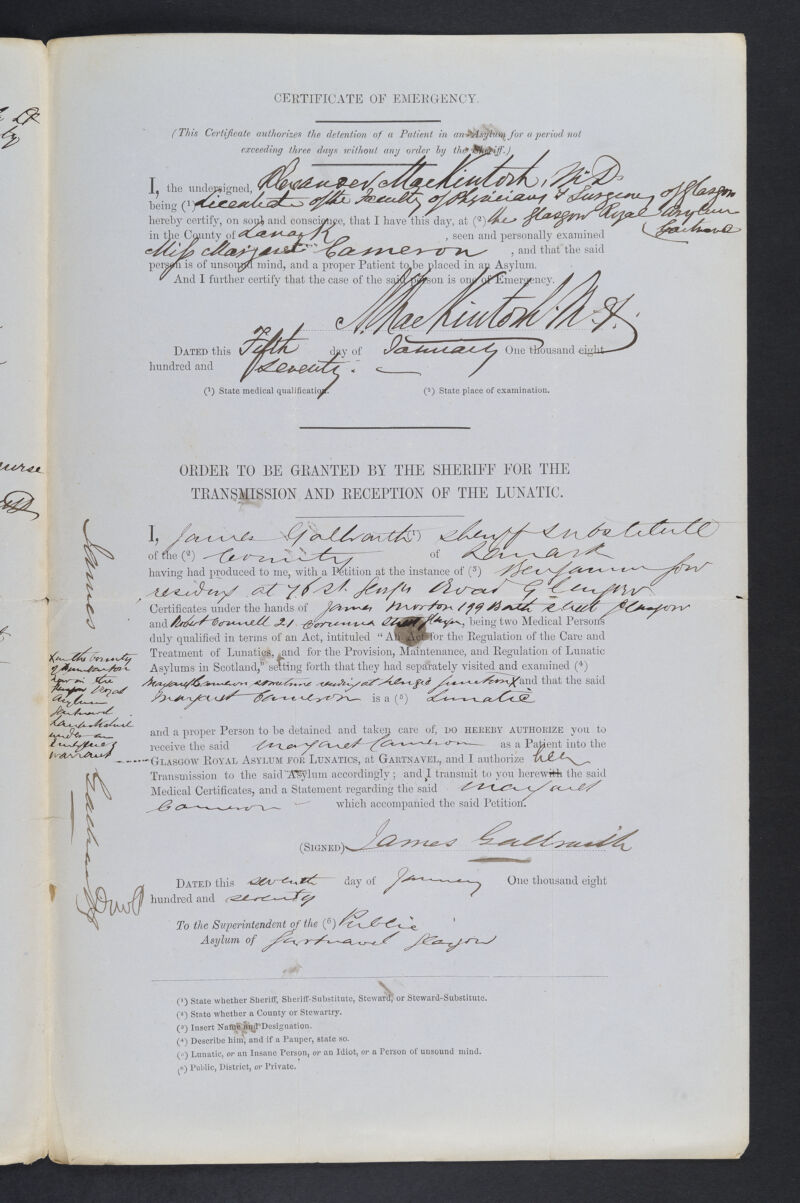 CERTIFICATE OF EMERGENCY.
(This Certificate authorizes the detention of a Patient in an Asylum for a period not
exceeding three days without any order by the Sheriff.)
I, the undersigned, Alexander MacKintosh, M.D.
being (1) Licentiate of the Faculty of Physicians & Surgeons of Glasgow
hereby certify, on soul and conscience, that I have this day, at (2) the Glasgow Royal Asylum
Gartnavel
in the County of Lanark , seen and personally examined
Miss Margaret Cameron , and that the said
person is of unsound mind, and a proper Patient to be placed in an Asylum.
And I further certify that the case of the said person is one of Emergency.
A. MacKintosh M.D.
DATED this Fifth day of January One thousand eight
hundred and seventy.
(1) State medical qualification. (2) State place of examination.
ORDER TO BE GRANTED BY THE SHERIFF FOR THE
TRANSMISSION AND RECEPTION OF THE LUNATIC.
I, James Galbraith (1) Sheriff Substitute
of the (2) County of Lanark
having had produced to me, with a Petition at the instance of (3) Benjamin
residing at 76 St. Georges Road Glasgow
Certificates under the hands of James Morton 199 Bath Street Glasgow
and Robt Connell 21 Corunna Street Glasgow, being two Medical Persons
duly qualified in terms of an Act, intituled "An Act for the Regulation of the Care and
Treatment of Lunatics, and for the Provision, Maintenance, and Regulation of Lunatic
Asylums in Scotland," setting forth that they had separately visited and examined (4)
Margaret Cameron sometime residing at Lenzie Junction X and that the said
Margaret Cameron is a (5) Lunatic
and a proper Person to be detained and taken care of, DO HEREBY AUTHORIZE you to
receive the said Margaret Cameron as a Patient into the
GLASGOW ROYAL ASYLUM FOR LUNATICS, AT GARTNAVEL, and I authorize her
Transmission to the said Asylum accordingly; and I transmit to you herewith the said
Medical Certificates, and a Statement regarding the said Margaret
Cameron which accompanied the said Petition.
(SIGNED) James Galbraith
DATED this seventh day of January One thousand eight
hundred and seventy
To the Superintendent of the (6) Public
Asylum of Gartnavel Glasgow
(1) State whether Sheriff, Sheriff-Substitute, Steward, or Steward-Substitute.
(2) State whether a County or Stewartry.
(3) Insert Name and Designation.
(4) Describe him, and if a Pauper, state so.
(5) Lunatic, or an Insane Person, or an Idiot, or a Person of unsound mind.
(6) Public, District, or Private.
X in the County
of Dumbarton
now in the
Glasgow Royal
Asylum
Gartnavel
Lanarkshire
under an
Emergency
warrant
James Galbraith